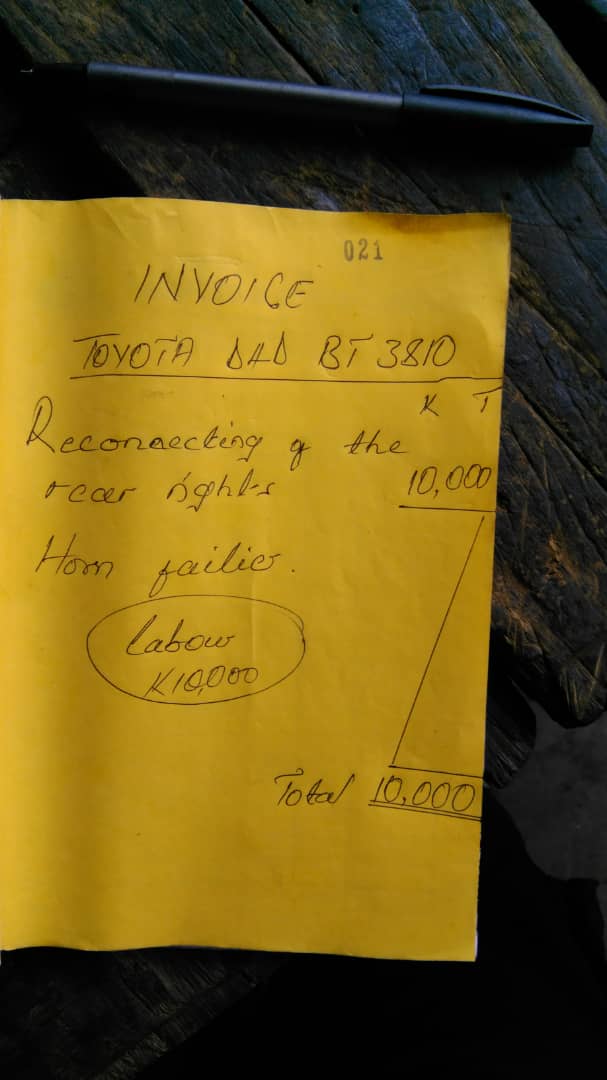 021
INVOICE
TOYOTA DAD BT 3810
K T
Reconnecting of the
rear rights 10,000
Horn failier.
labour
K10,000
Total 10,000